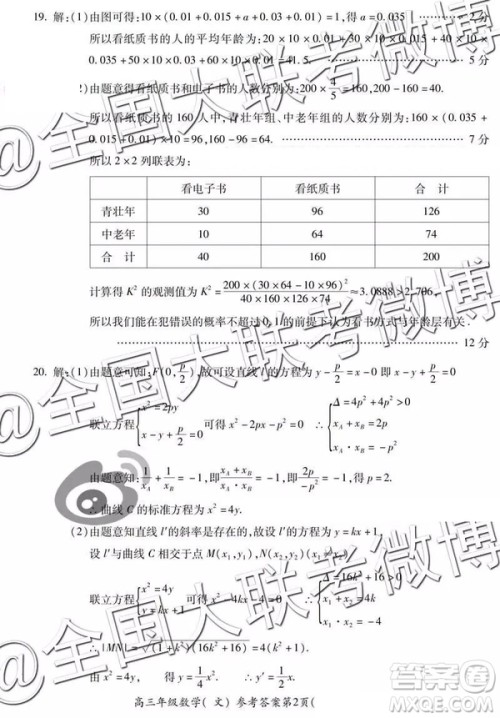 19. 解:(1)由图可得:10×(0.01+0.015+a+0.03+0.01)=1,得 a=0.035 ………… 2分
所以看纸质书的人的平均年龄为:20×10×0.01+30×10×0.015+40×10×
0.035+50×10×0.03+60×10×0.01=41.5. ………… 5分
2)由题意得看纸质书和电子书的人数分别为:200×4/5=160,200-160=40.
所以看纸质书的 160 人中,青壮年组、中老年组的人数分别为:160×(0.035+
0.015+0.01)×10=96,160-96=64. ………… 7分
所以 2×2 列联表为:
看电子书 看纸质书 合 计
青壮年 30 96 126
中老年 10 64 74
合 计 40 160 200
计算得 K² 的观测值为 K²=200×(30×64-10×96)²/40×160×126×74≈3.0888>2.706,
所以我们能在犯错误的概率不超过 0.1 的前提下认为看书方式与年龄层有关.
………… 12分
20. 解:(1)由题意可知:F(0,p/2),故可设直线 l 的方程为 y-p/2=x-0 即 x-y+p/2=0
联立方程{x²=2py x-y+p/2=0 可得 x²-2px-p²=0 ∴{Δ=4p²+4p²>0 x_A+x_B=2p x_A·x_B=-p²
由题意知:1/x_A+1/x_B=-1,即 x_A+x_B/x_A·x_B=-1,即 2p/-p²=-1,得 p=2.
∴曲线 C 的标准方程为 x²=4y.
(2)由题意知直线 l′的斜率是存在的,故设 l′的方程为 y=kx+1,
设 l′与曲线 C 相交于点 M(x₁,y₁),N(x₂,y₂)
联立方程{x²=4y y=kx+1 可得 x²-4kx-4=0 ∴{Δ=16k²+16>0 x₁+x₂=4k x₁·x₂=-4
∴|MN|=√(1+k²)(16k²+16)=4(k²+1)
由 x²=4y 得 y=1/4x². ∴y′=1/2x.
高三年级数学(文)参考答案第2页(
@全国大联考微博
@全国大联考微博
@全国大联考微博
答案圈